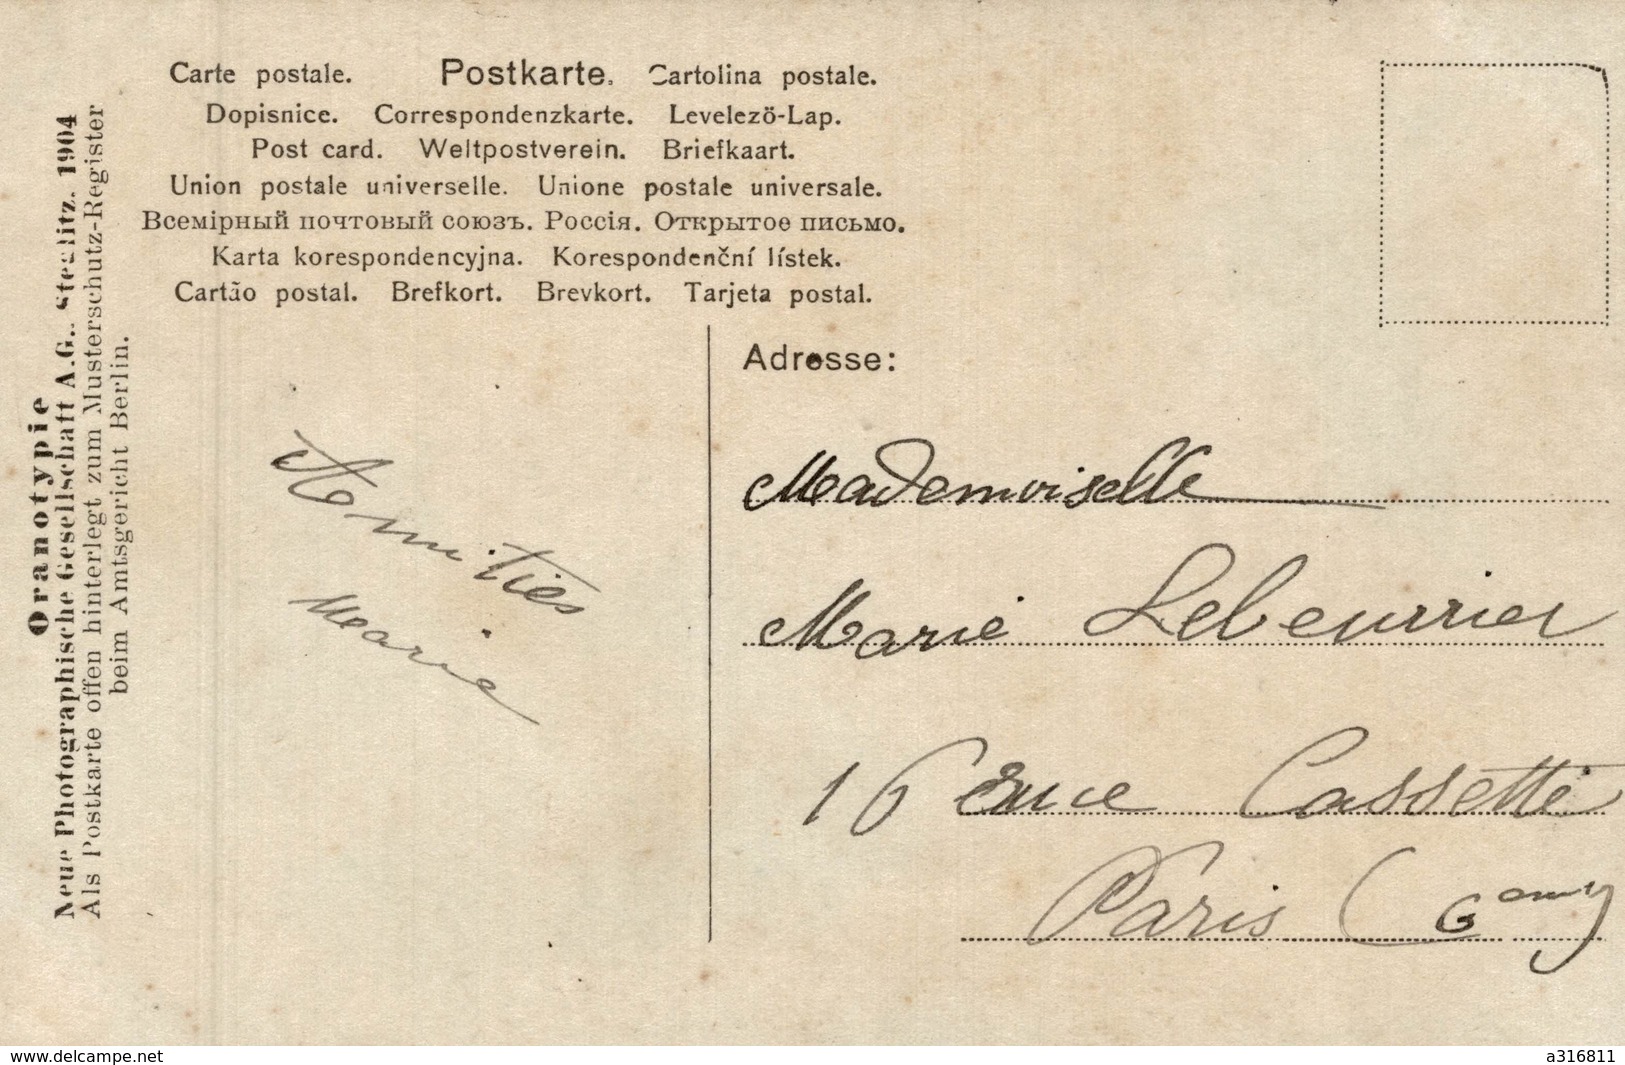 Carte postale. Postkarte. Cartolina postale.
Dopisnice. Correspondenzkarte. Levelező-Lap.
Post card. Weltpostverein. Briefkaart.
Union postale universelle. Unione postale universale.
Всемірный почтовый союзъ. Россія. Открытое письмо.
Karta korespondencyjna. Korespondenční lístek.
Cartão postal. Brefkort. Brevkort. Tarjeta postal.
Oranotypie
Neue Photographische Gesellschaft A.G., Steglitz. 1904
Als Postkarte offen hinterlegt zum Musterschutz-Register
beim Amtsgericht Berlin.
Amitiés
Marie
Adresse:
Mademoiselle
Marie Lebeurrier
16 rue Cassette
Paris (6
www.delcampe.net
a316811